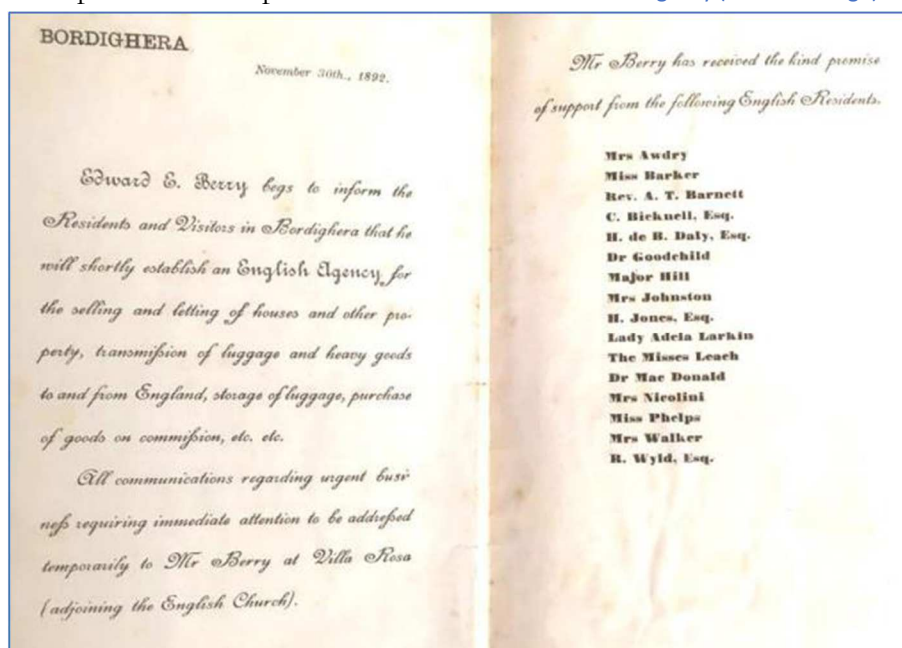 BORDIGHERA
November 30th., 1892.
Edward E. Berry begs to inform the
Residents and Visitors in Bordighera that he
will shortly establish an English Agency, for
the selling and letting of houses and other pro-
perty, transmission of luggage and heavy goods
to and from England, storage of luggage, purchase
of goods on commission, etc. etc.
All communications regarding urgent busi-
ness requiring immediate attention to be addressed
temporarily to Mr Berry at Villa Rosa
(adjoining the English Church).
Mr Berry has received the kind promise
of support from the following English Residents.
Mrs Awdry
Miss Barker
Rev. A. T. Barnett
C. Bicknell, Esq.
H. de B. Daly, Esq.
Dr Goodchild
Major Hill
Mrs Johnston
H. Jones, Esq.
Lady Adela Larkin
The Misses Leach
Dr Mac Donald
Mrs Nicolini
Miss Phelps
Mrs Walker
R. Wyld, Esq.